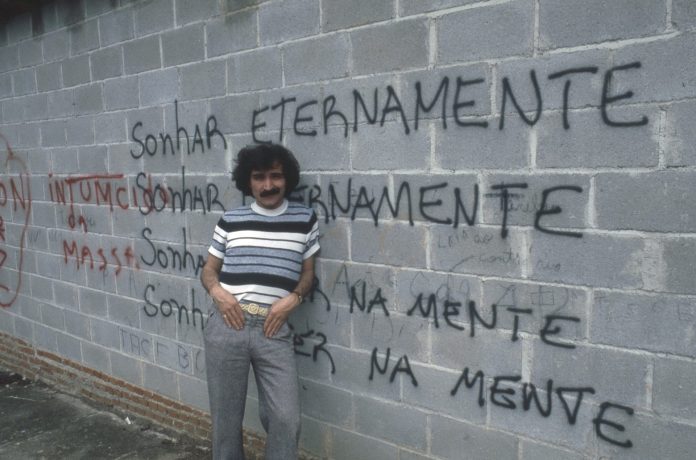 SonHAR ETERNAMENTE
SonHAR ERNAMENTE
SonHA
R NA MENTE
SonHA
ER NA MENTE
ON
INTUMCIDO
DA
MASSA